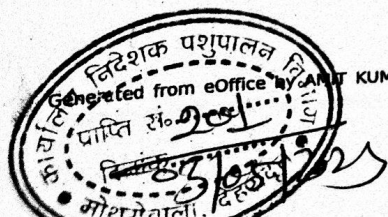 कार्यालय निदेशक पशुपालन विभाग
Generated from eOffice by AMIT KUM
प्राप्ति सं०
दिनांक
मोथरोवाला, देहरादून